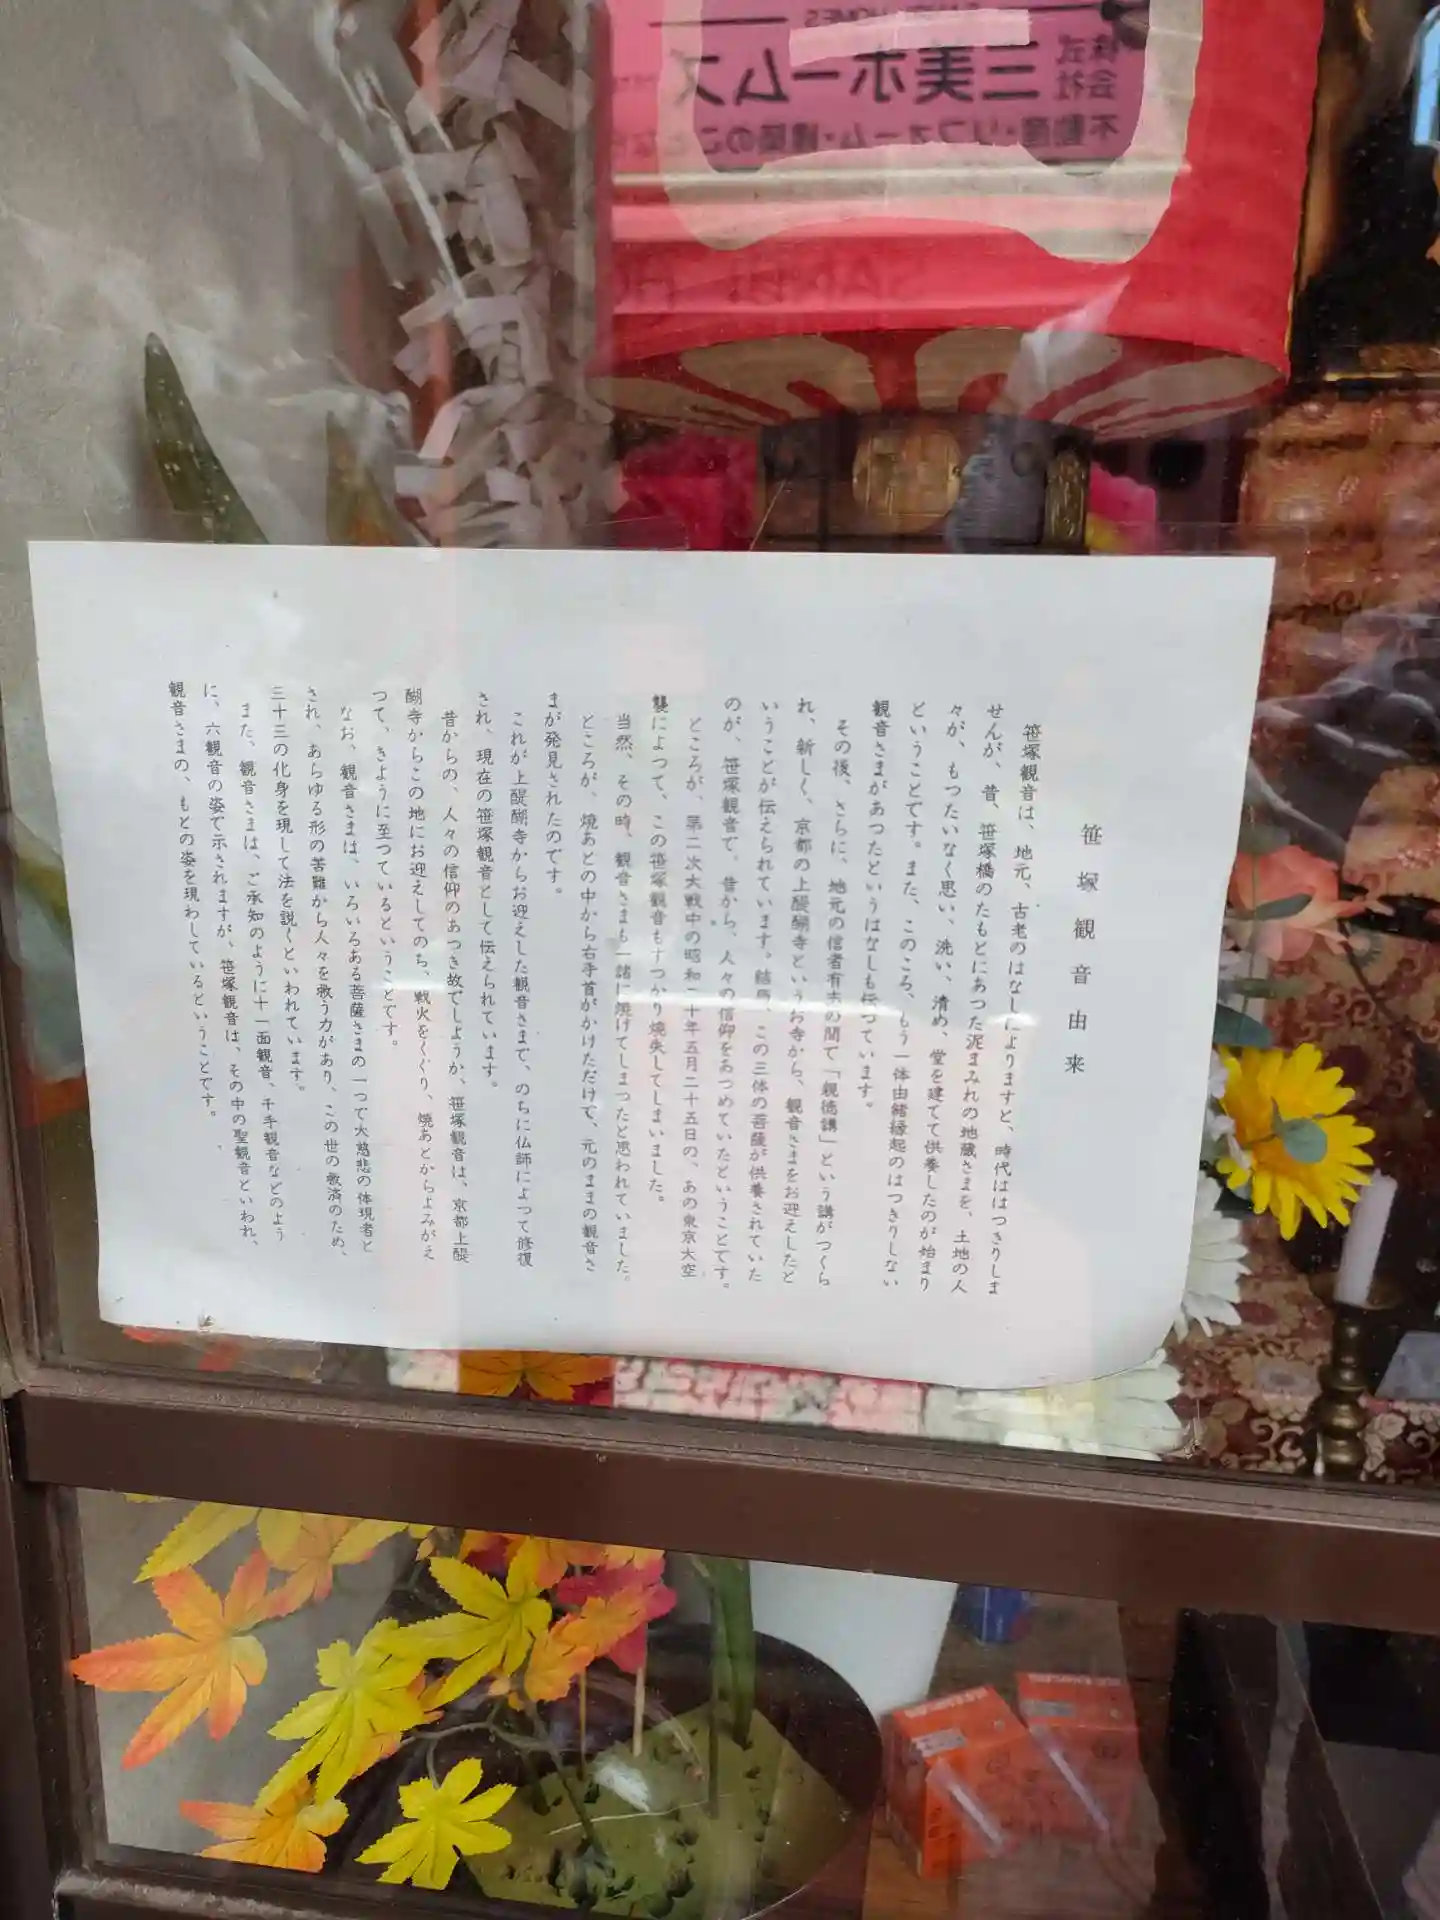 株式
会社
三美ホームズ
不動産・リフォーム・建築のこ
笹塚観音由来
笹塚観音は、地元、古老のはなしによりますと、時代ははつきりしま
せんが、昔、笹塚橋のたもとにあつた泥まみれの地蔵さまを、土地の人
々が、もつたいなく思い、洗い、清め、堂を建てて供養したのが始まり
ということです。また、このころ、もう一体由緒縁起のはつきりしない
観音さまがあつたというはなしも伝つています。
その後、さらに、地元の信者有志の間で「親徳講」という講がつくら
れ、新しく、京都の上醍醐寺というお寺から、観音さまをお迎えしたと
いうことが伝えられています。結局、この三体の菩薩が供養されていた
のが、笹塚観音で。昔から、人々の信仰をあつめていたということです。
ところが、第二次大戦中の昭和二十年五月二十五日の、あの東京大空
襲によつて、この笹塚観音もすつかり焼失してしまいました。
当然、その時、観音さまも一諸に焼けてしまつたと思われていました。
ところが、焼あとの中から右手首がかけただけで、元のままの観音さ
まが発見されたのです。
これが上醍醐寺からお迎えした観音さまで、のちに仏師によつて修復
され、現在の笹塚観音として伝えられています。
昔からの、人々の信仰のあつき故でしようか、笹塚観音は、京都上醍
醐寺からこの地にお迎えしてのち、戦火をくぐり、焼あとからよみがえ
つて、きように至つているということです。
なお、観音さまは、いろいろある菩薩さまの一つで大慈悲の体現者と
され、あらゆる形の苦難から人々を救う力があり、この世の救済のため、
三十三の化身を現して法を説くといわれています。
また、観音さまは、ご承知のように十一面観音、千手観音などのよう
に、六観音の姿で示されますが、笹塚観音は、その中の聖観音といわれ、
観音さまの、もとの姿を現わしているということです。